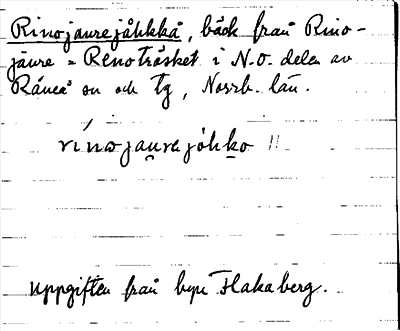 Rinojaurejåkkå, bäck från Rino-
jaure = Renoträsket i N.O. delen av
Råneå sn och tg, Norrb. län.
rinojaurejåhko !!
Uppgiften från byn Flakaberg.